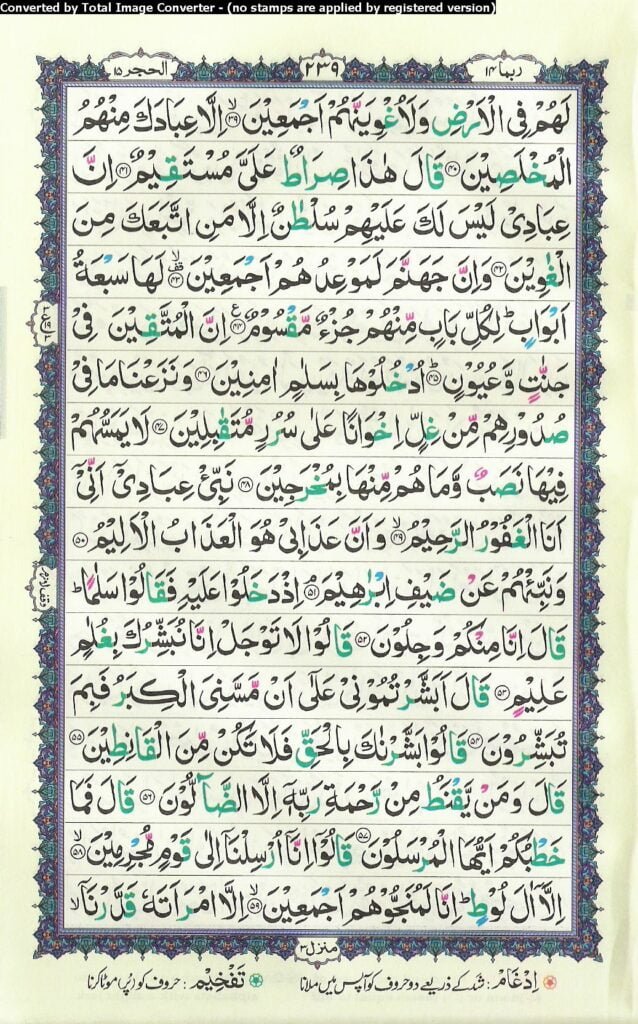 Converted by Total Image Converter - (no stamps are applied by registered version)
ربما ١٤
٢٣٩
الحجر ١٥
لَهُمْ فِی الْاَرْضِ وَلَاُغْوِیَنَّهُمْ اَجْمَعِیْنَ ۙ﴿۳۹﴾ اِلَّا عِبَادَكَ مِنْهُمُ
الْمُخْلَصِیْنَ ﴿۴۰﴾ قَالَ هٰذَا صِرَاطٌ عَلَیَّ مُسْتَقِیْمٌ ﴿۴۱﴾ اِنَّ
عِبَادِیْ لَیْسَ لَكَ عَلَیْهِمْ سُلْطٰنٌ اِلَّا مَنِ اتَّبَعَكَ مِنَ
الْغٰوِیْنَ ﴿۴۲﴾ وَاِنَّ جَهَنَّمَ لَمَوْعِدُهُمْ اَجْمَعِیْنَ ۟ۙ﴿۴۳﴾ لَهَا سَبْعَةُ
اَبْوَابٍ ؕ لِكُلِّ بَابٍ مِّنْهُمْ جُزْءٌ مَّقْسُوْمٌ ﴿۴۴﴾ ع اِنَّ الْمُتَّقِیْنَ فِیْ
جَنّٰتٍ وَّعُیُوْنٍ ؕ﴿۴۵﴾ اُدْخُلُوْهَا بِسَلٰمٍ اٰمِنِیْنَ ﴿۴۶﴾ وَنَزَعْنَا مَا فِیْ
صُدُوْرِهِمْ مِّنْ غِلٍّ اِخْوَانًا عَلٰی سُرُرٍ مُّتَقٰبِلِیْنَ ﴿۴۷﴾ لَا یَمَسُّهُمْ
فِیْهَا نَصَبٌ وَّمَا هُمْ مِّنْهَا بِمُخْرَجِیْنَ ﴿۴۸﴾ نَبِّئْ عِبَادِیْۤ اَنِّیْۤ
اَنَا الْغَفُوْرُ الرَّحِیْمُ ۙ﴿۴۹﴾ وَاَنَّ عَذَابِیْ هُوَ الْعَذَابُ الْاَلِیْمُ ﴿۵۰﴾
وَنَبِّئْهُمْ عَنْ ضَیْفِ اِبْرٰهِیْمَ ۘ﴿۵۱﴾ اِذْ دَخَلُوْا عَلَیْهِ فَقَالُوْا سَلٰمًا ؕ
قَالَ اِنَّا مِنْكُمْ وَجِلُوْنَ ﴿۵۲﴾ قَالُوْا لَا تَوْجَلْ اِنَّا نُبَشِّرُكَ بِغُلٰمٍ
عَلِیْمٍ ﴿۵۳﴾ قَالَ اَبَشَّرْتُمُوْنِیْ عَلٰۤی اَنْ مَّسَّنِیَ الْكِبَرُ فَبِمَ
تُبَشِّرُوْنَ ﴿۵۴﴾ قَالُوْا بَشَّرْنٰكَ بِالْحَقِّ فَلَا تَكُنْ مِّنَ الْقَانِطِیْنَ ﴿۵۵﴾
قَالَ وَمَنْ یَّقْنَطُ مِنْ رَّحْمَةِ رَبِّهٖۤ اِلَّا الضَّآلُّوْنَ ﴿۵۶﴾ قَالَ فَمَا
خَطْبُكُمْ اَیُّهَا الْمُرْسَلُوْنَ ﴿۵۷﴾ قَالُوْۤا اِنَّاۤ اُرْسِلْنَاۤ اِلٰی قَوْمٍ مُّجْرِمِیْنَ ۙ﴿۵۸﴾
اِلَّاۤ اٰلَ لُوْطٍ ؕ اِنَّا لَمُنَجُّوْهُمْ اَجْمَعِیْنَ ۙ﴿۵۹﴾ اِلَّا امْرَاَتَهٗ قَدَّرْنَاۤ ۙ
وقف لازم
منزل ۳
اِدْغَام : شد کے ذریعے دو حروف کو آپس میں ملانا
تَفْخِیْم : حروف کو (پُر) موٹا کرنا